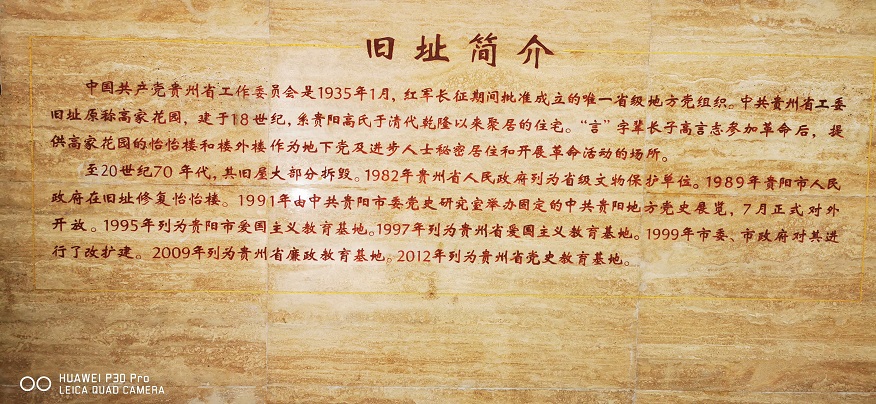 旧址简介
中国共产党贵州省工作委员会是1935年1月，红军长征期间批准成立的唯一省级地方党组织。中共贵州省工委
旧址原称高家花园，建于18世纪，系贵阳高氏于清代乾隆以来聚居的住宅。“言”字辈长子高言志参加革命后，提
供高家花园的怡怡楼和楼外楼作为地下党及进步人士秘密居住和开展革命活动的场所。
至20世纪70年代，其旧屋大部分拆毁。1982年贵州省人民政府列为省级文物保护单位。1989年贵阳市人民
政府在旧址修复怡怡楼。1991年由中共贵阳市委党史研究室举办固定的中共贵阳地方党史展览，7月正式对外
开放。1995年列为贵阳市爱国主义教育基地。1997年列为贵州省爱国主义教育基地。1999年市委、市政府对其进
行了改扩建。2009年列为贵州省廉政教育基地。2012年列为贵州省党史教育基地。
HUAWEI P30 Pro
LEICA QUAD CAMERA